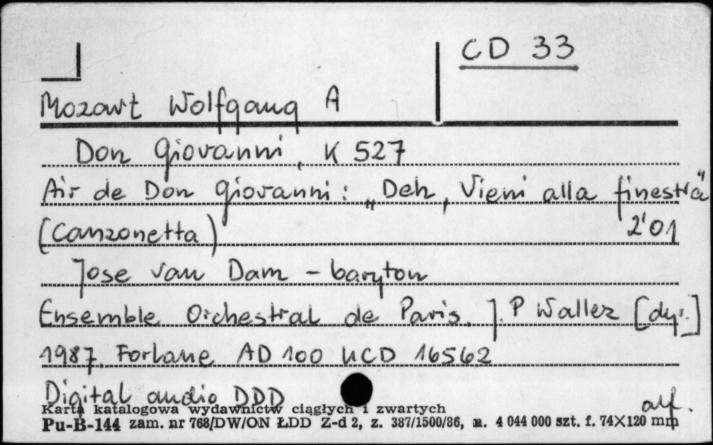 CD 33
Mozart Wolfgang A
Don Giovanni, K 527
Air de Don Giovanni: „Deh, Vieni alla finestra"
(Canzonetta) 2'01
Jose van Dam - baryton
Ensemble Orchestral de Paris. J.P Wallez [dyr.]
1987, Forlane AD 100 UCD 16562
Digital audio DDD
Karta katalogowa wydawnictw ciągłych i zwartych
Pu-B-144 zam. nr 768/DW/ON ŁDD Z-d 2, z. 387/1500/86, n. 4 044 000 szt. f. 74X120 mm